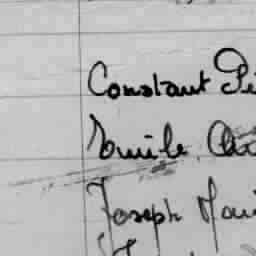 Constant Pé
Emile, Au
Joseph Mari